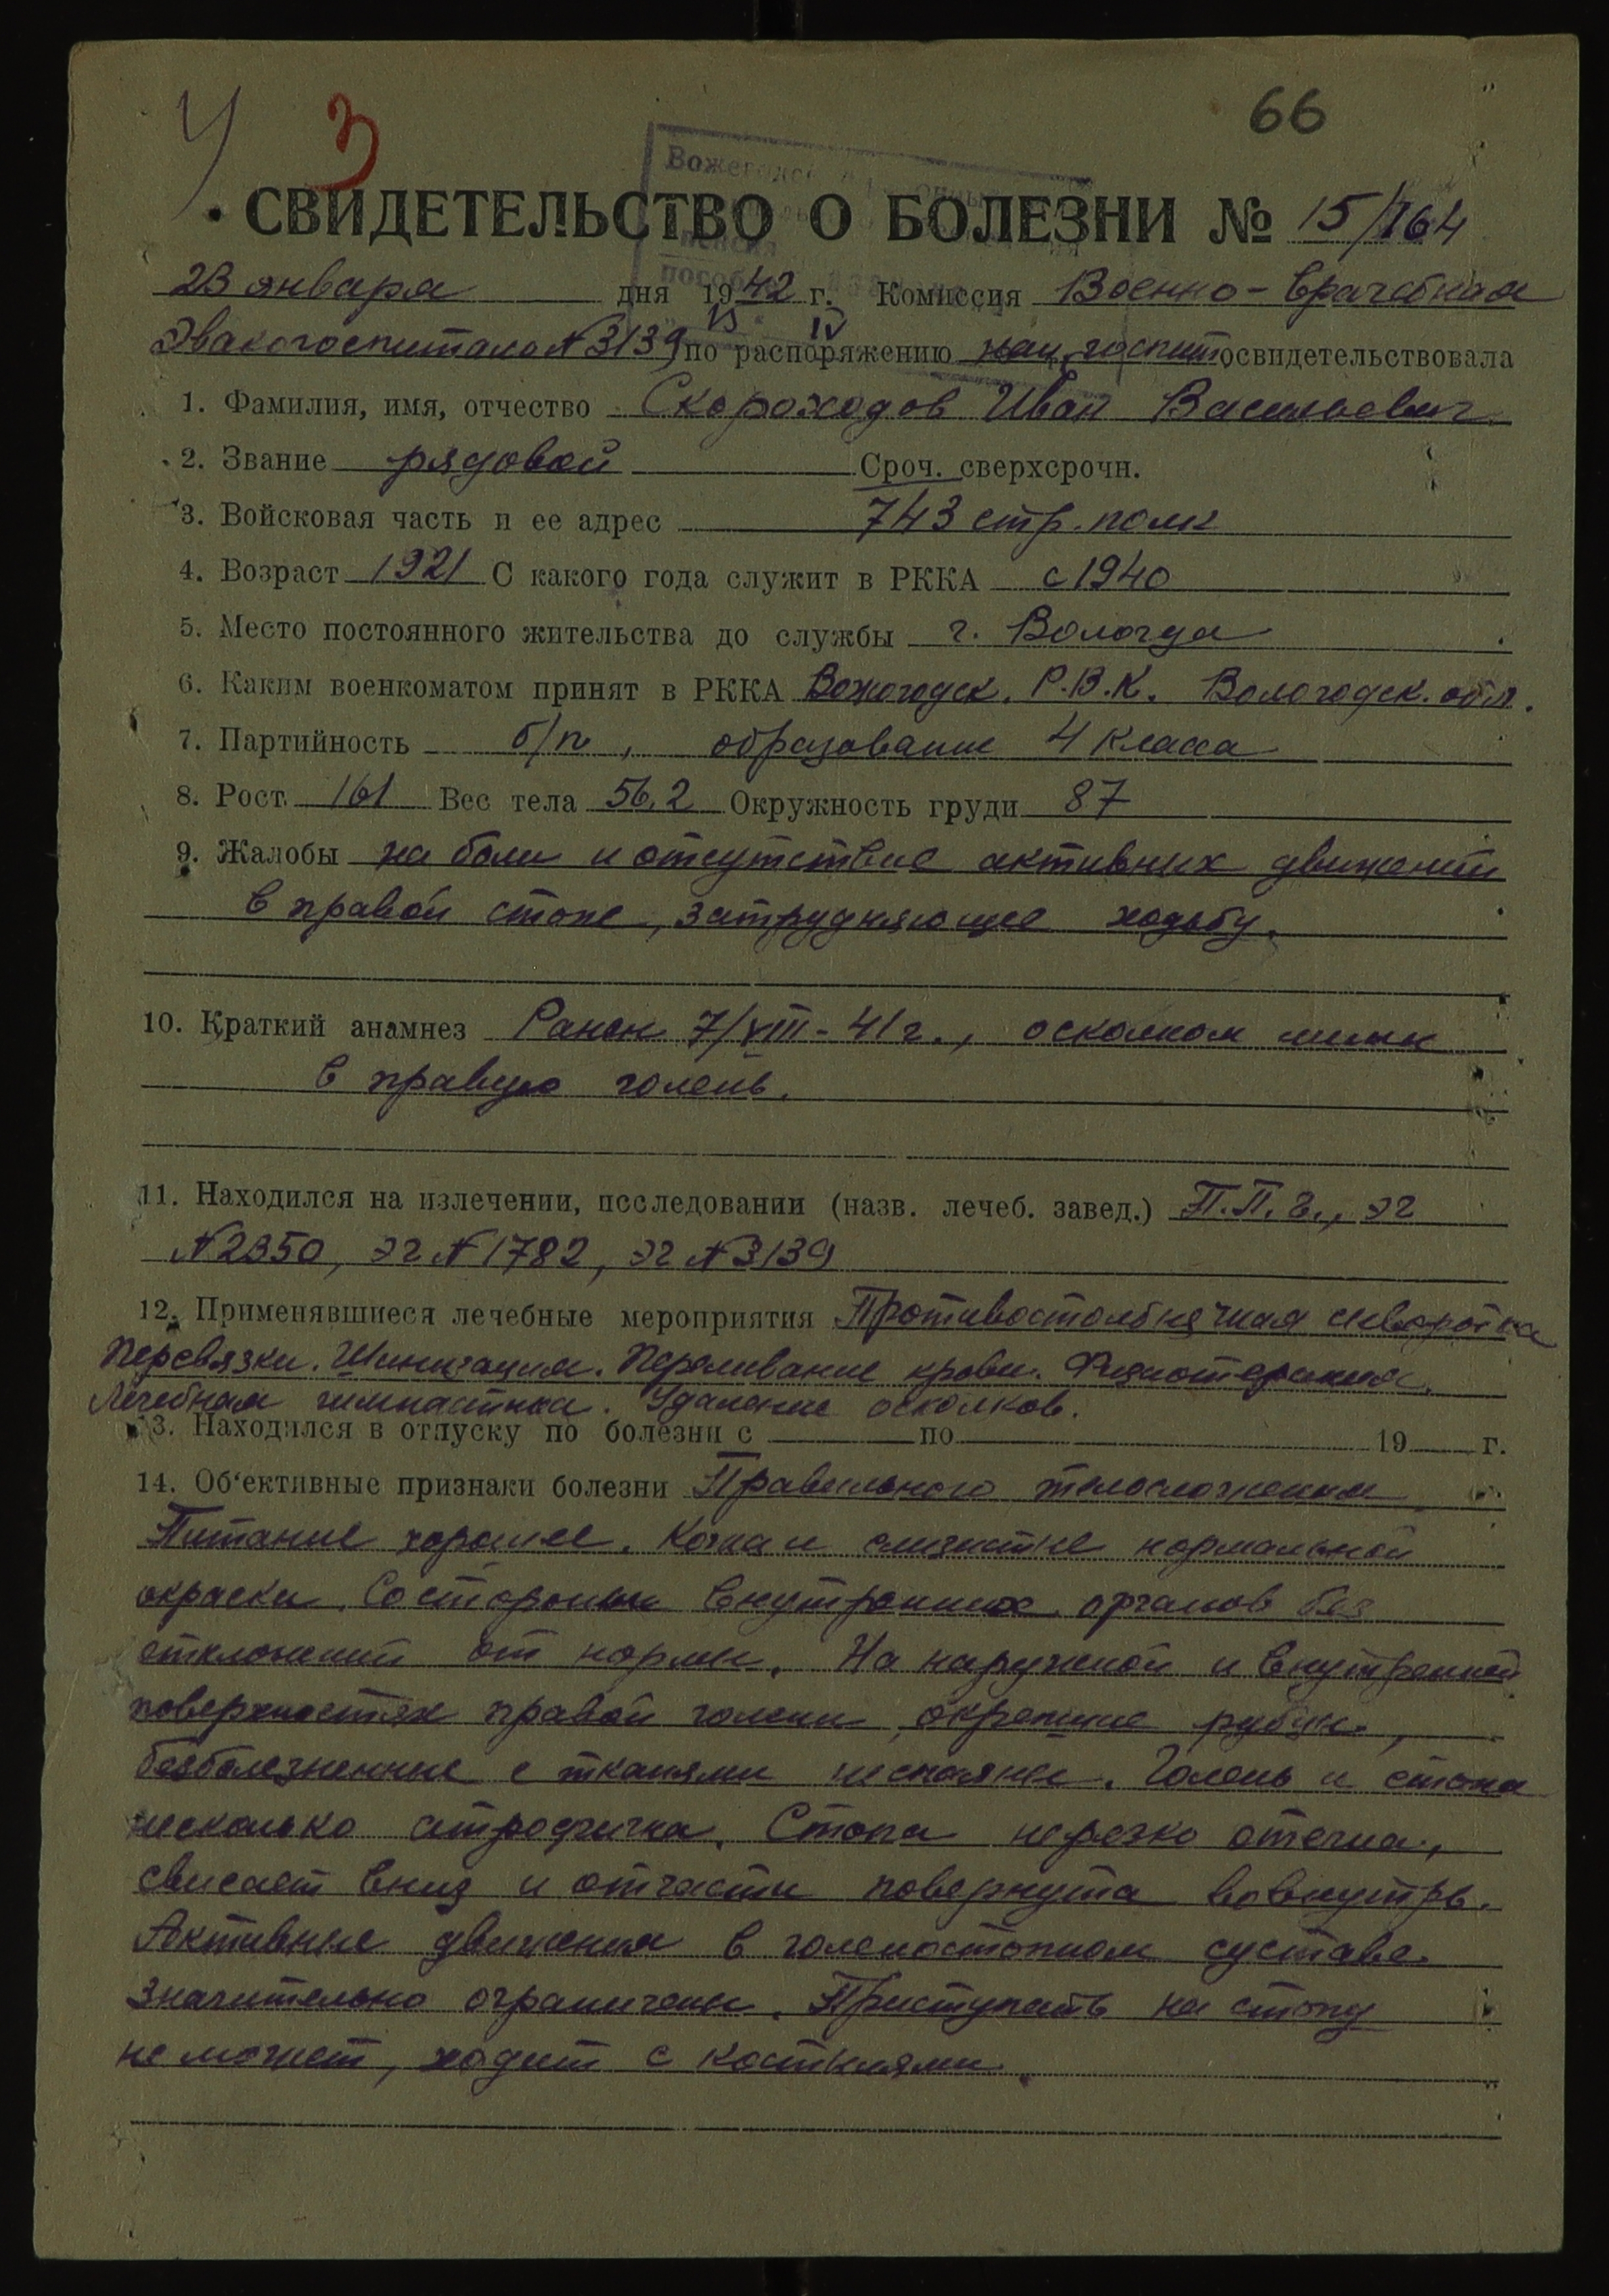 У 3 66
Вожегодск
пенсия
пособ
СВИДЕТЕЛЬСТВО О БОЛЕЗНИ № 15/164
23 января дня 1942 г. Комиссия Военно-врачебная
13 IV
Эвакогоспиталя №3139 по распоряжению нач. госпит. освидетельствовала
1. Фамилия, имя, отчество Скороходов Иван Васильевич
2. Звание рядовой Сроч. сверхсрочн.
3. Войсковая часть и ее адрес 743 стр. полк
4. Возраст 1921 С какого года служит в РККА с 1940
5. Место постоянного жительства до службы г. Вологда
6. Каким военкоматом принят в РККА Вожегодск. Р.В.К. Вологодск. обл.
7. Партийность б/п, образование 4 класса
8. Рост 161 Вес тела 56,2 Окружность груди 87
9. Жалобы на боли и отсутствие активных движений
в правой стопе, затрудняющее ходьбу.
10. Краткий анамнез Ранен 7/VIII-41г., осколком мины
в правую голень.
11. Находился на излечении, исследовании (назв. лечеб. завед.) П.П.Г., ЭГ
№2350, ЭГ №1782, ЭГ №3139
12. Применявшиеся лечебные мероприятия Противостолбнячная сыворотка
Перевязки. Шинизация. Переливание крови. Физиотерапия.
Лечебная гимнастика. Удаление осколков.
13. Находился в отпуску по болезни с по 19 г.
14. Об‘ективные признаки болезни Правильного телосложения
Питание хорошее. Кожа и слизистые нормальной
окраски. Со стороны внутренних органов без
отклонений от нормы. На наружной и внутренней
поверхностях правой голени, окрепшие рубцы,
безболезненные с тканями неспаяны. Голень и стопа
несколько атрофична. Стопа нерезко отечна,
свисает вниз и отчасти повернута вовнутрь.
Активные движения в голеностопном суставе
значительно ограничены. Приступать на стопу
не может, ходит с костылями.